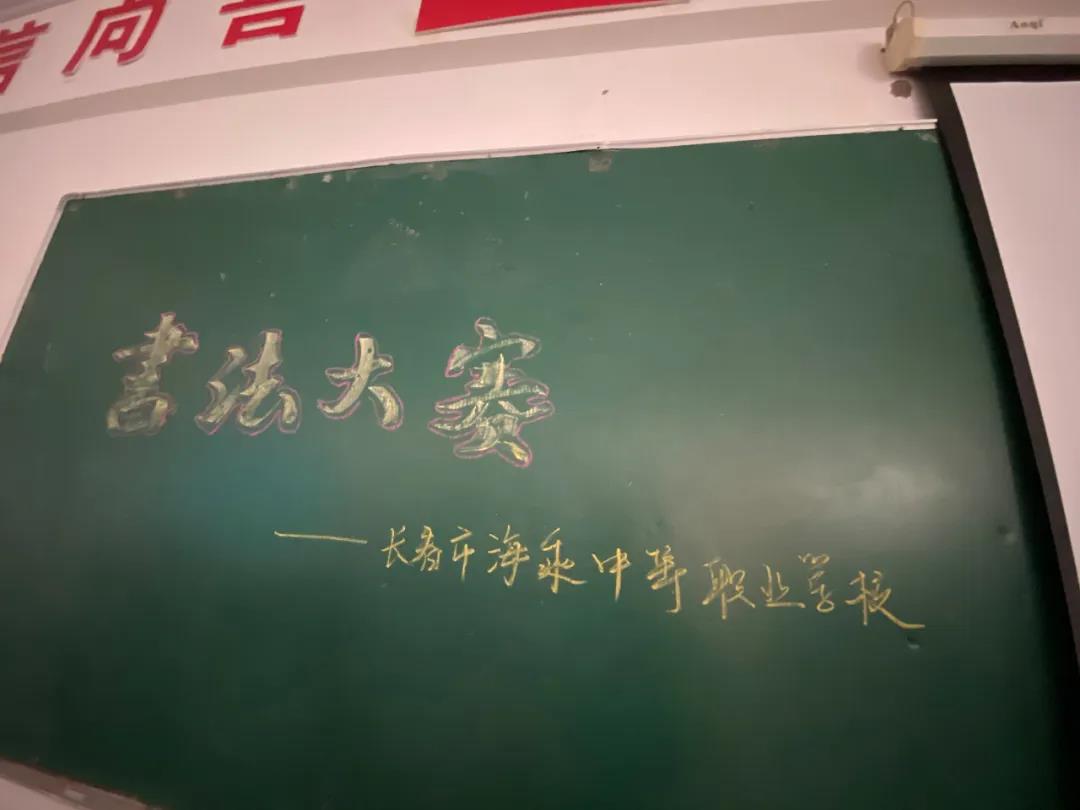 信向善
Aoqi
书法大赛
——长春市海乘中等职业学校